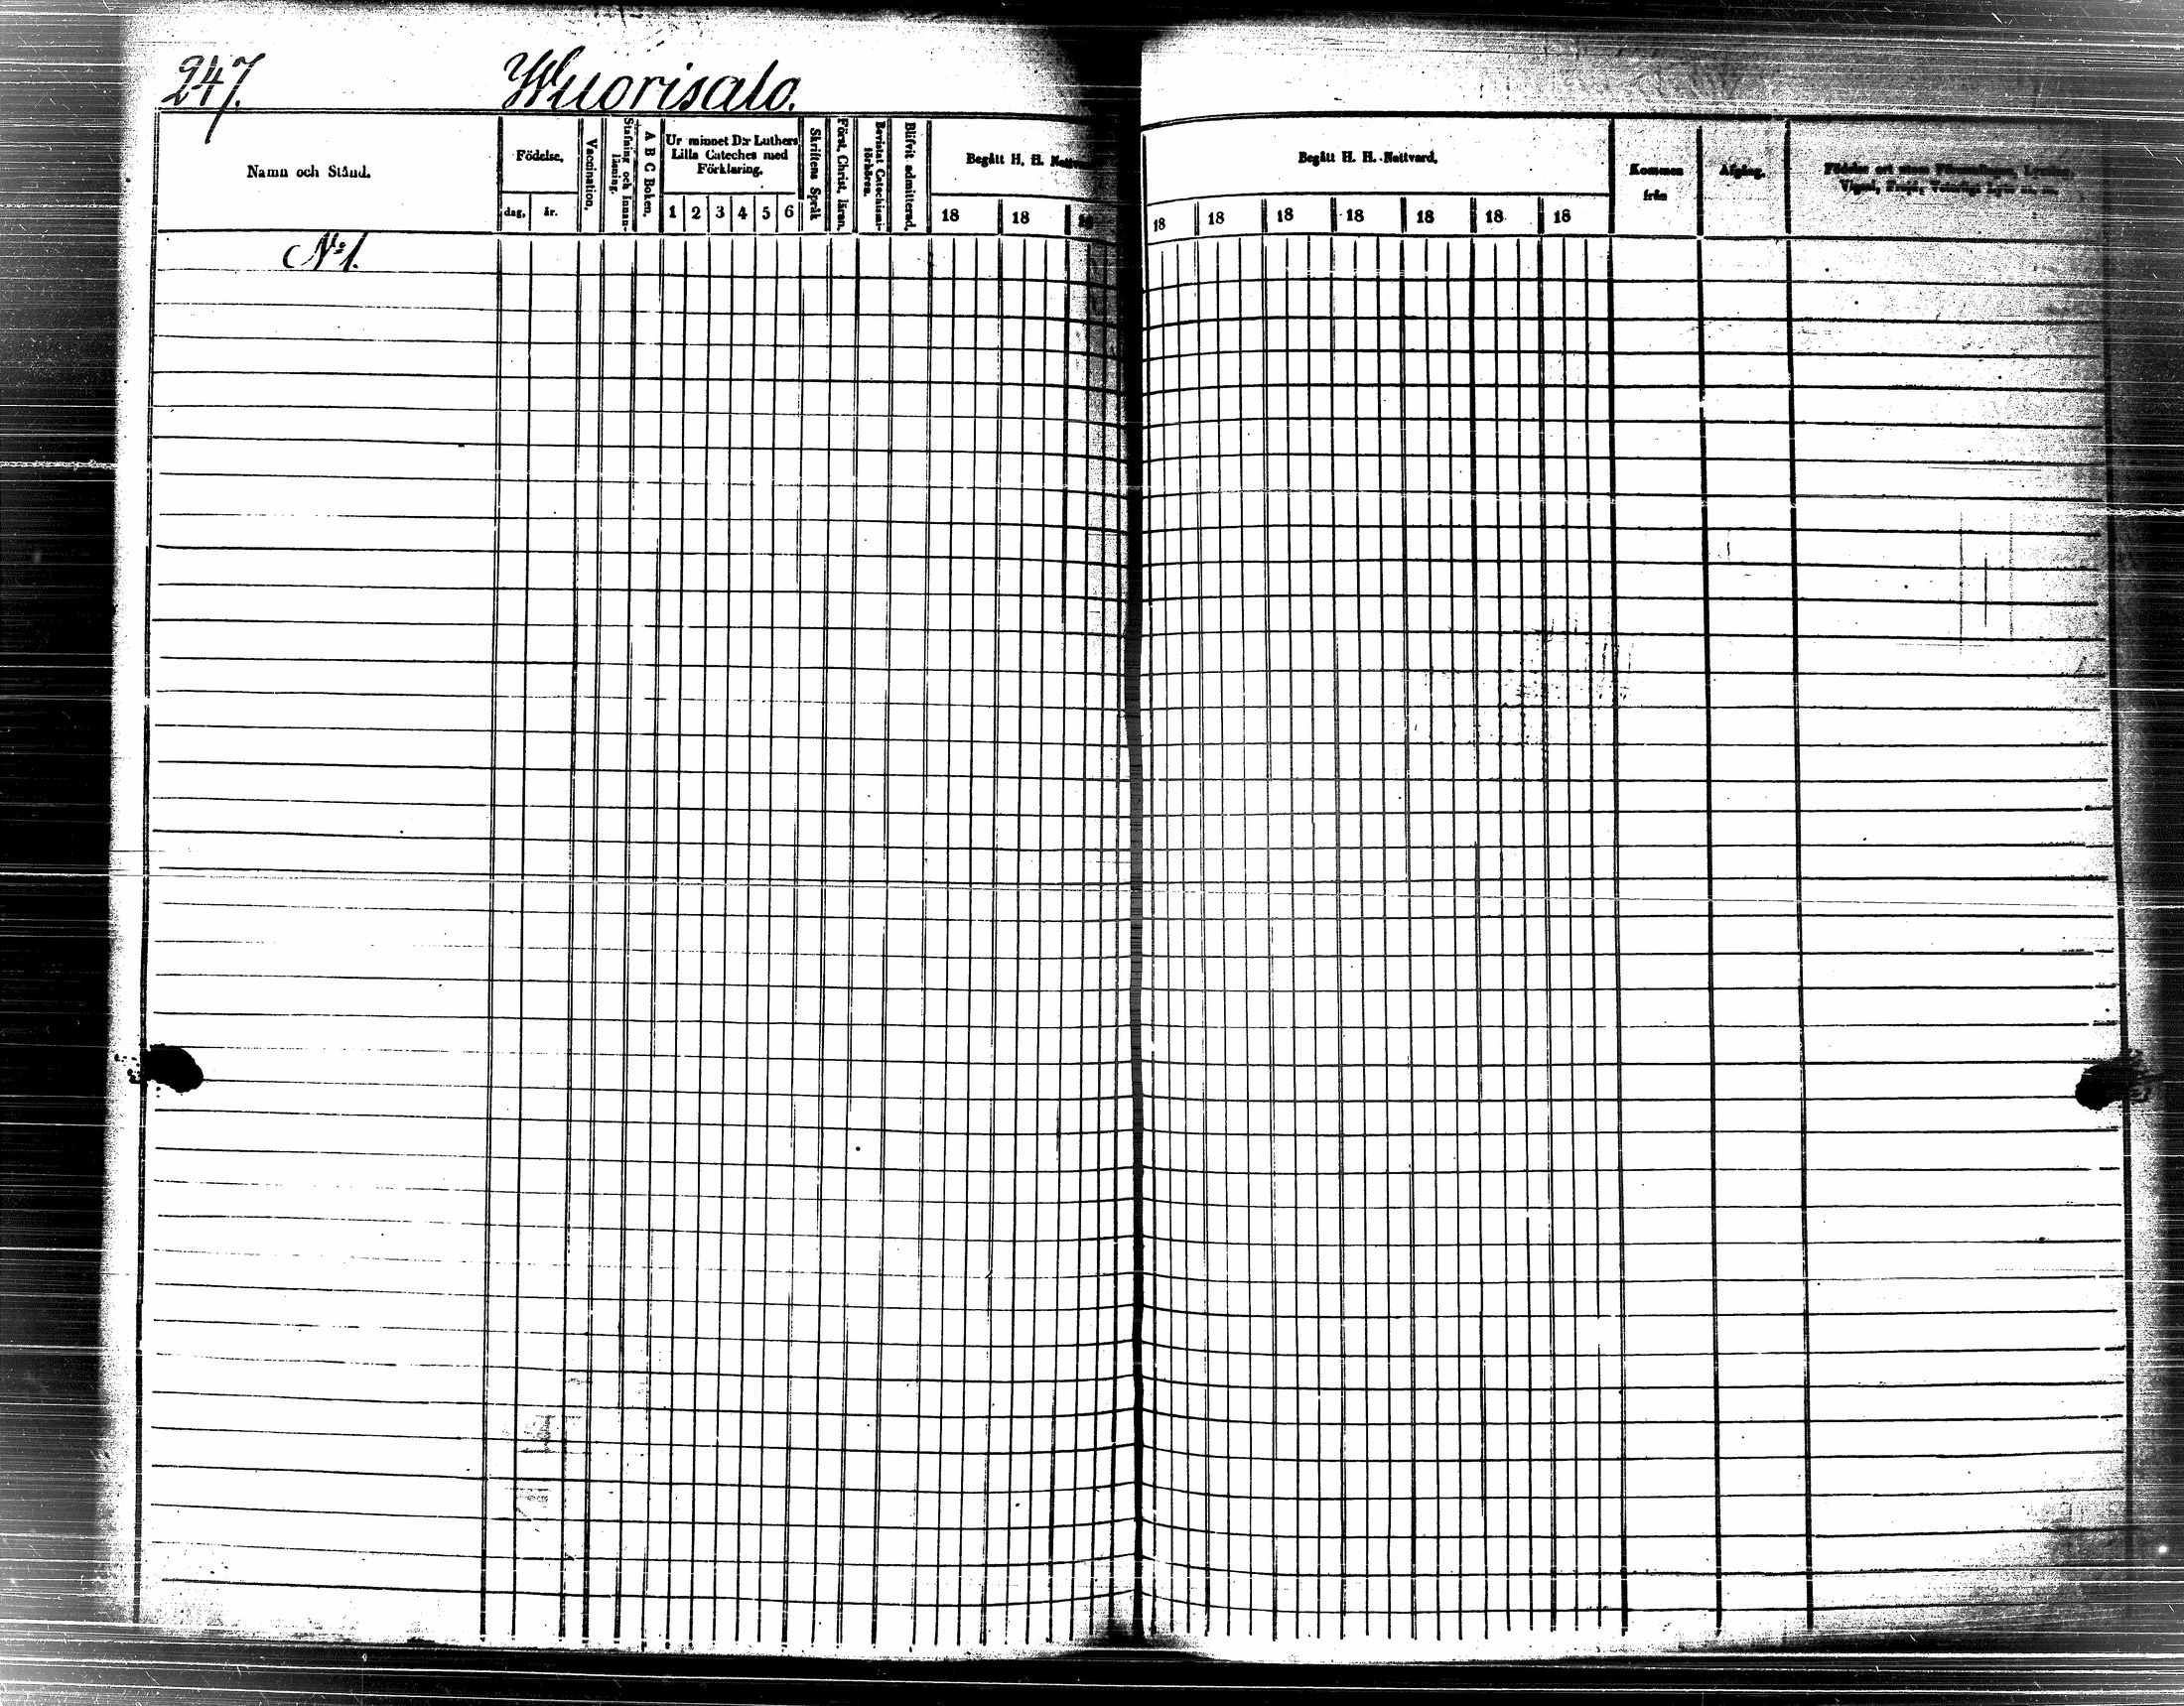 247. Wuorisalo.
Namn och Stånd.
Födelse,
dag, år.
Vaccination,
Stafning och Innan-
läsning.
A B C Boken,
Ur minnet D:r Luthers
Lilla Cateches med
Förklaring,
1 2 3 4 5 6
Skriftens Språk
Först. Christ. läran.
Bevistat Catechismi-
förhören.
Blifvit admitterad,
Begått H. H. Nattvard
18 18 18
Begått H. H. Nattvard,
18 18 18 18 18 18 18
Kommen
från
Afgång,
N:o 1.